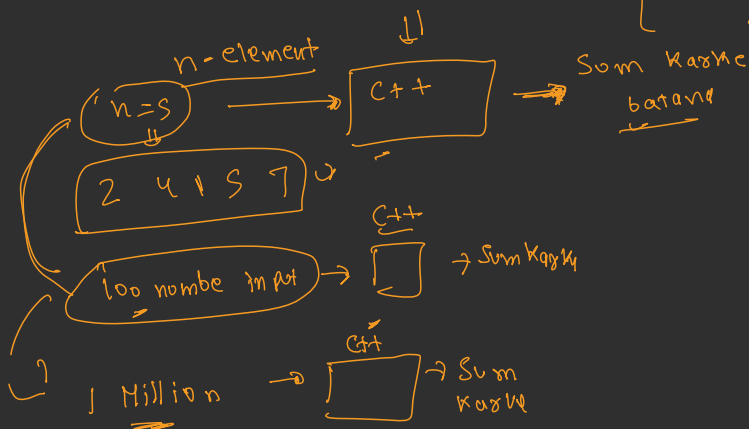 n-element
n=5
C++
Sum karke
batana
2 4 1 5 7
C++
100 numbe input
Sum karke
C++
1 Million
Sum
karke